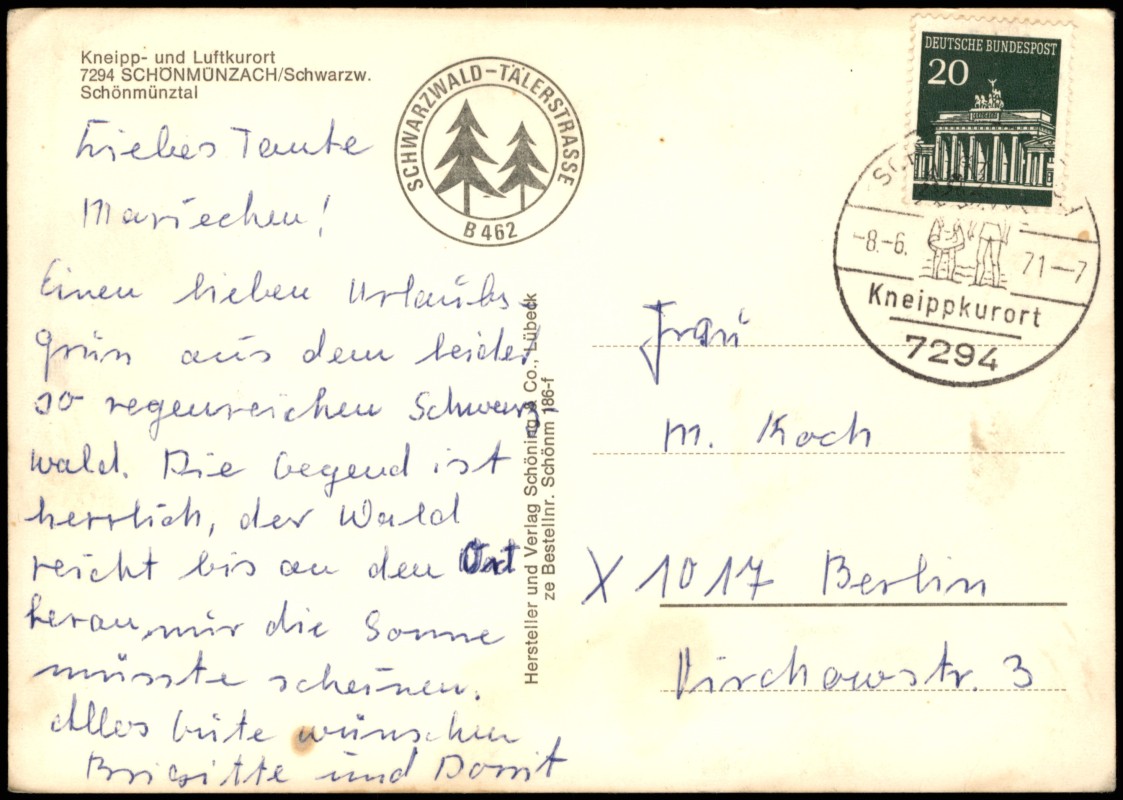 Kneipp- und Luftkurort
7294 SCHÖNMÜNZACH/Schwarzw.
Schönmünztal
SCHWARZWALD-TÄLERSTRASSE
B 462
DEUTSCHE BUNDESPOST
20
-8.-6.
71-7
Kneippkurort
7294
Liebes Tante
Mariechen!
Einen lieben Urlaubs-
grün aus dem leider
so regenreichen Schwarz-
wald. Die Gegend ist
herrlich, der Wald
reicht bis an den Ort
heran, nur die Sonne
müsste scheinen.
Alles Gute wünschen
Brigitte und Dorrit
Hersteller und Verlag Schöning & Co., Lübeck
ze Bestellnr. Schönm 186-f
Frau
M. Koch
X 1017 Berlin
Virchowstr. 3